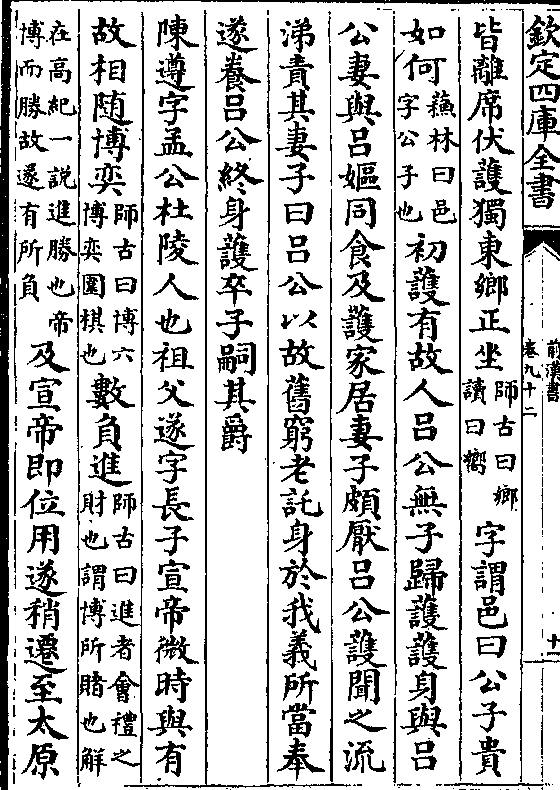 欽定四庫全書
前漢書
卷九十二
十一
皆離席伏護獨東鄉正坐師古曰鄉讀曰嚮字謂邑曰公子貴
如何蘓林曰邑字公子也初護有故人呂公無子歸護護身與呂
公妻與呂嫗同食及護家居妻子頗厭呂公護聞之流
涕責其妻子曰呂公以故舊窮老託身於我義所當奉
遂養呂公終身護卒子嗣其爵
陳遵字孟公杜陵人也祖父遂字長子宣帝微時與有
故相随博奕師古曰博六博奕圍棋也數負進師古曰進者會禮之財也謂博所賭也解
在高紀一說進勝也帝博而勝故遂有所負及宣帝即位用遂稍遷至太原